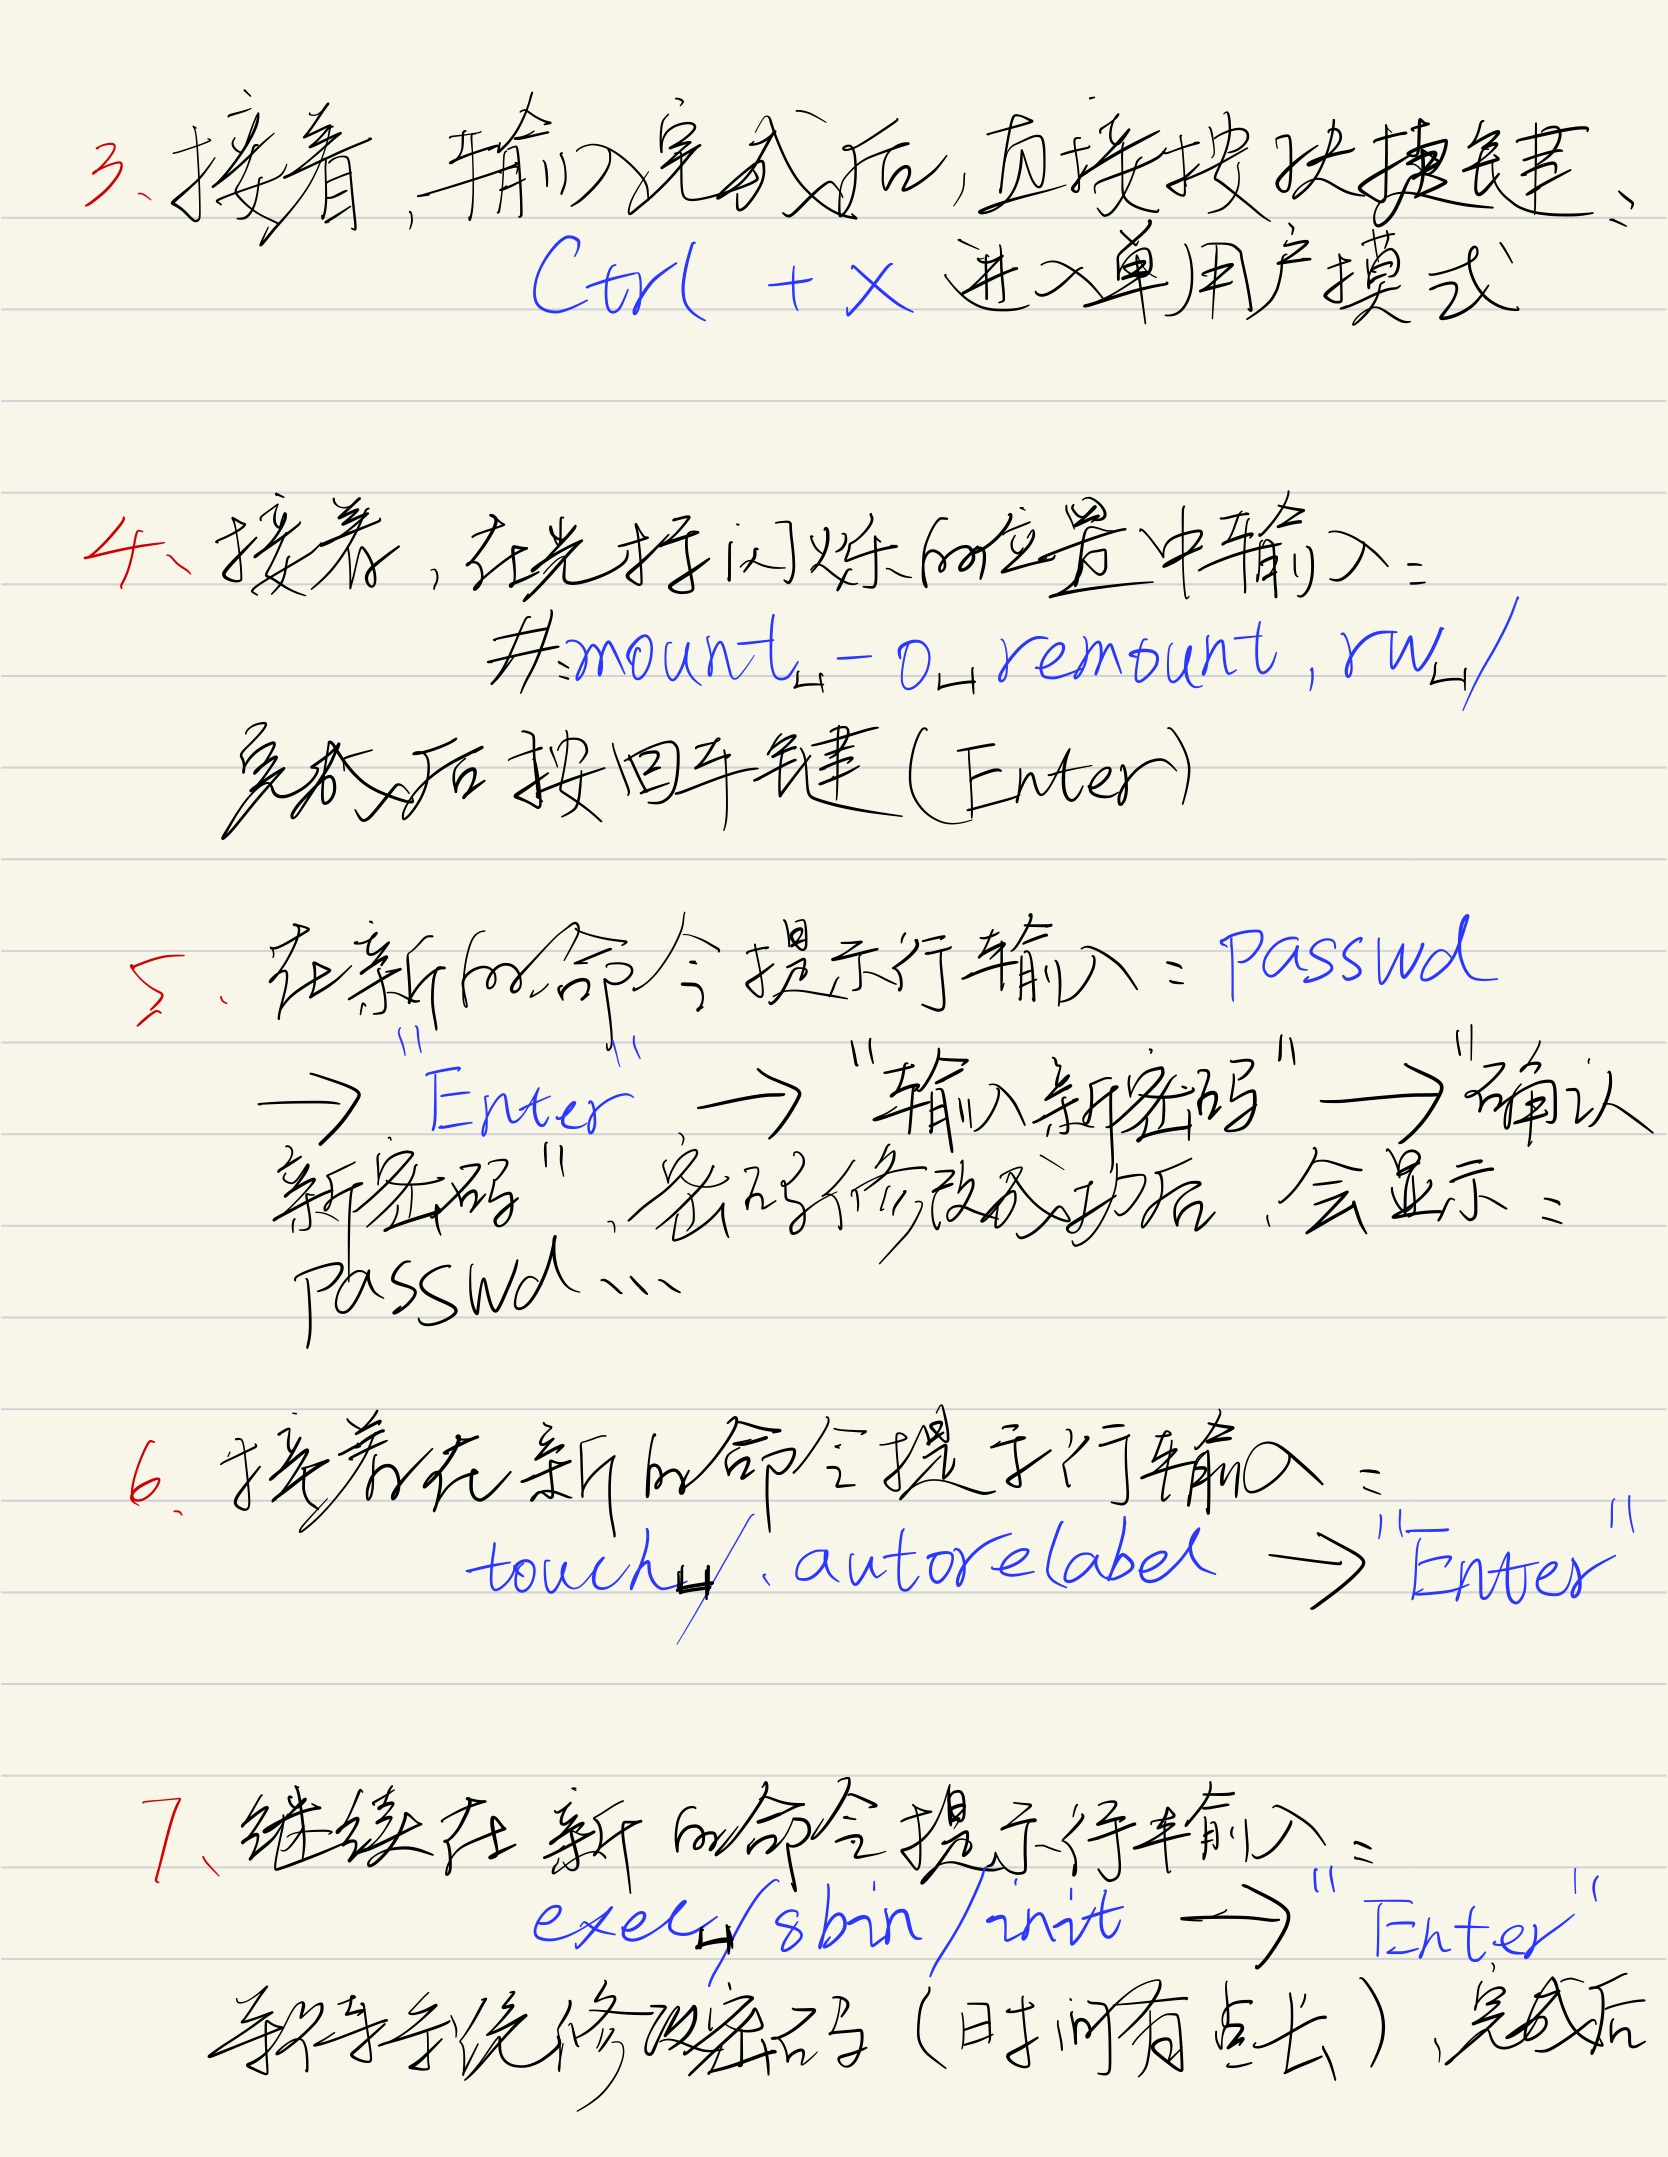 3、接着，输入完成后，直接按快捷键：
Ctrl + X 进入单用户模式
4、接着，在光标闪烁的位置中输入：
#:mount␣-o␣remount,rw␣/
完成后按回车键(Enter)
5、在新的命令提示行输入：passwd
→ "Enter" → "输入新密码" → "确认
新密码"，密码修改成功后，会显示：
passwd...
6、接着在新的命令提示行输入：
touch␣/.autorelabel → "Enter"
7、继续在新的命令提示行输入：
exec␣/sbin/init → "Enter"
等待系统修改密码(时间有点长)，完成后